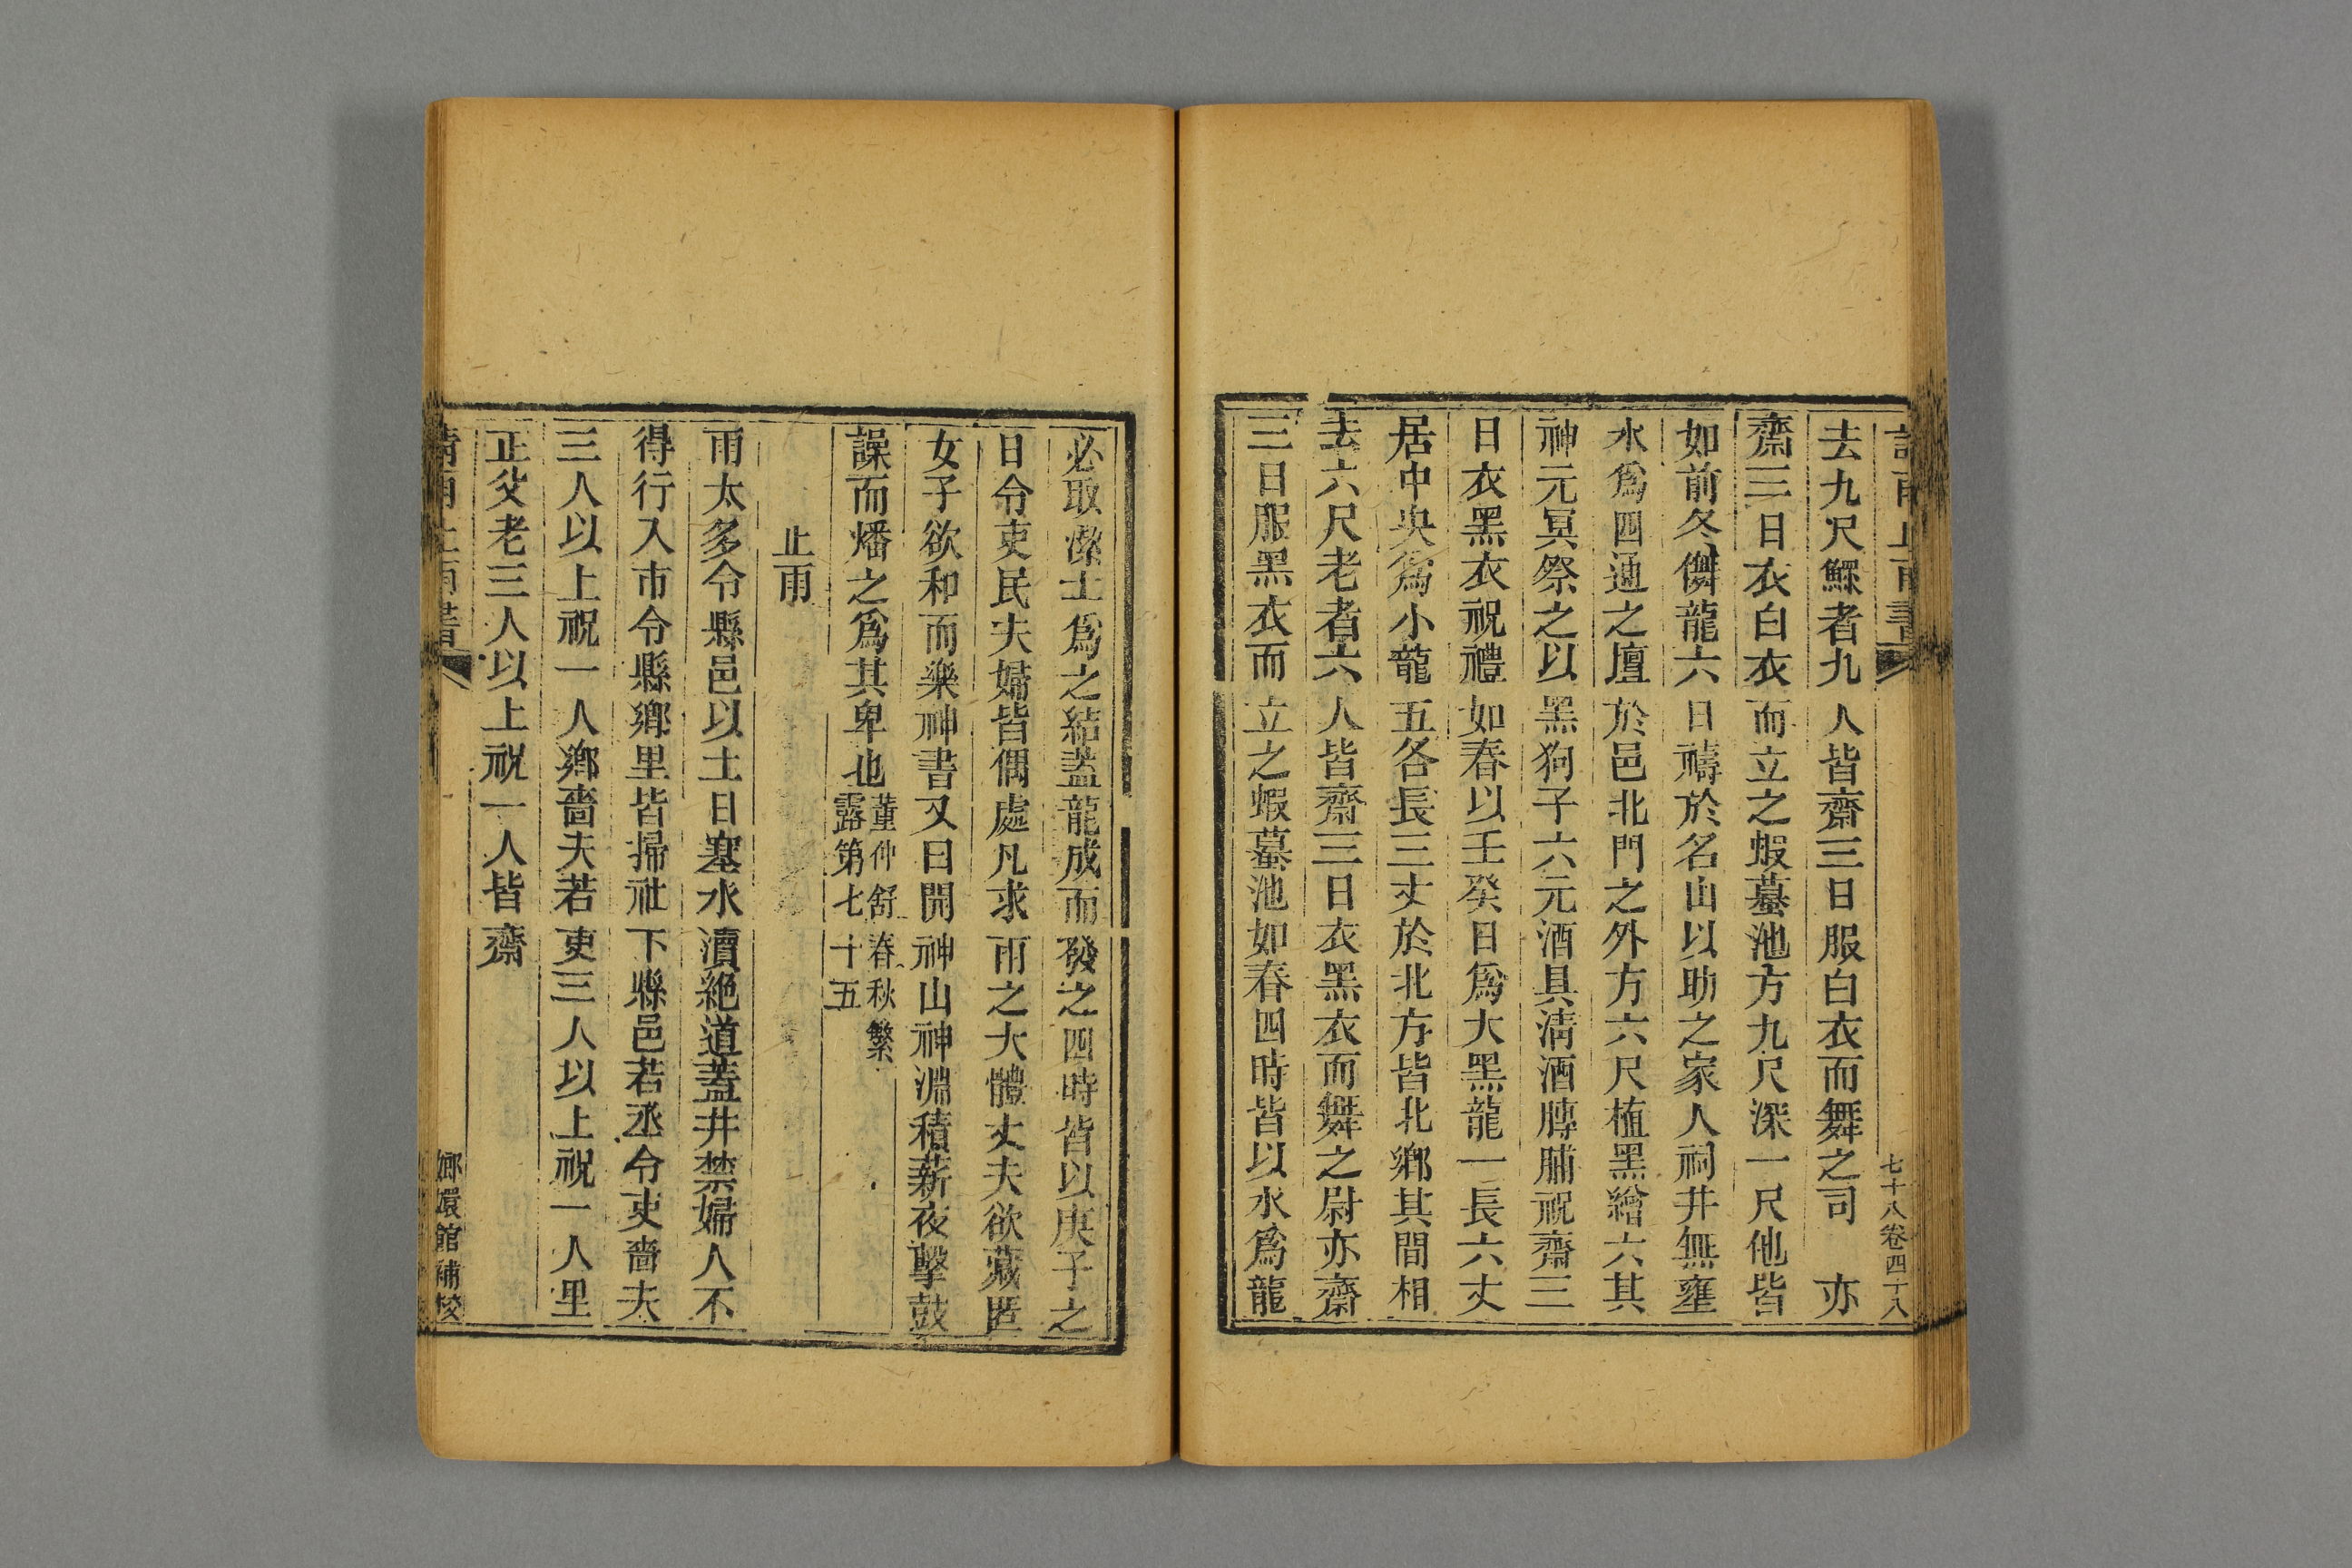 請雨止雨書
七十八卷四十八
去九尺鰥者九人皆齋三日服白衣而舞之司　亦
齋三日衣白衣而立之蝦蟇池方九尺深一尺他皆
如前冬儛龍六日禱於名山以助之家人祠井無壅
水爲四通之壇於邑北門之外方六尺植黑繒六其
神元冥祭之以黑狗子六元酒具淸酒膊脯祝齋三
日衣黑衣祝禮如春以壬癸日爲大黑龍一長六丈
居中央爲小龍五各長三丈於北方皆北鄉其間相
去六尺老者六人皆齋三日衣黑衣而舞之尉亦齋
三日服黑衣而立之蝦蟇池如春四時皆以水爲龍
必取潔土爲之結蓋龍成而發之四時皆以庚子之
日令吏民夫婦皆偶處凡求雨之大體丈夫欲藏匿
女子欲和而樂神書又曰開神山神淵積薪夜擊鼓
譟而燔之爲其旱也董仲舒春秋繁
露第七十五
止雨
雨太多令縣邑以土日塞水瀆絶道蓋井禁婦人不
得行入市令縣鄉里皆掃社下縣邑若丞令吏嗇夫
三人以上祝一人鄉嗇夫若吏三人以上祝一人里
正父老三人以上祝一人皆齋
請雨止雨書
嫏嬛館補校